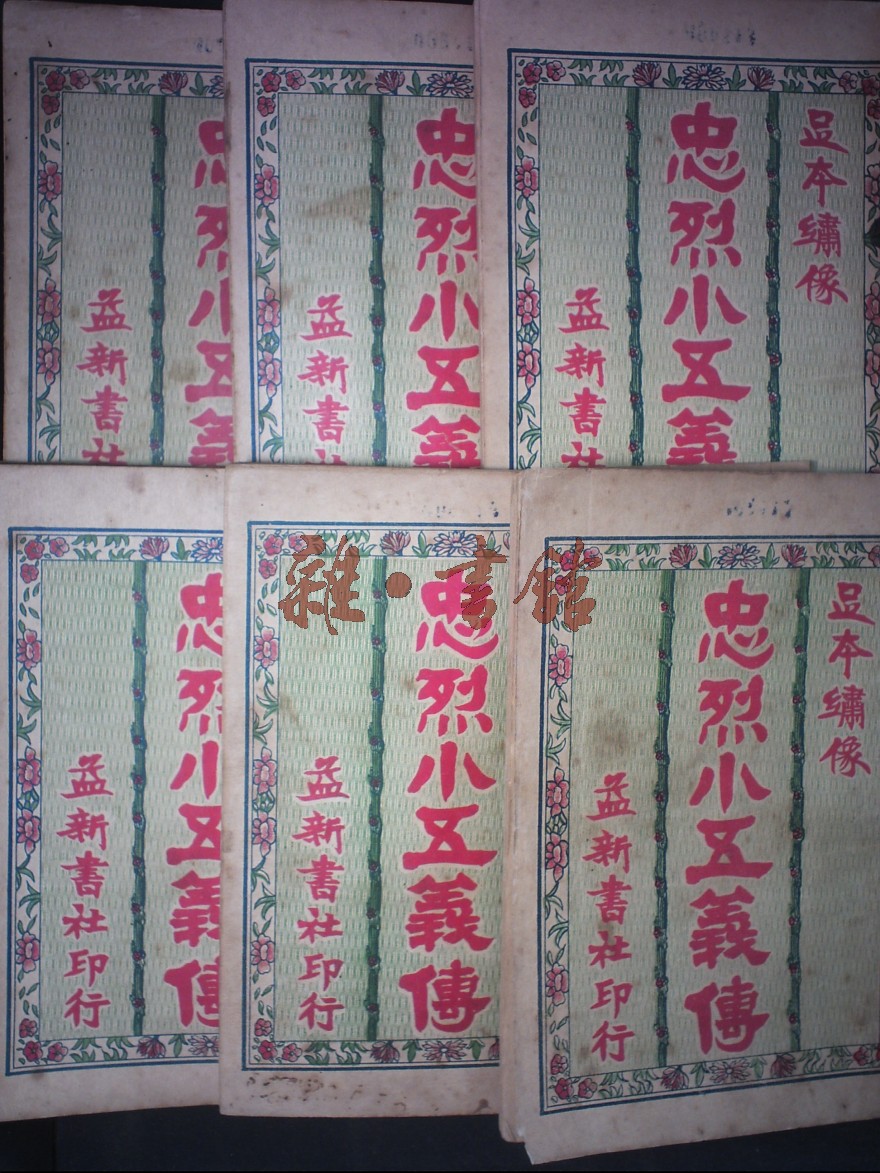 足本繡像
忠烈小五義
益新書社
忠烈小五義
益新書社
忠烈小五義
益新書社
足本繡像
忠烈小五義傳
益新書社印行
忠烈小五義傳
益新書社印行
忠烈小五義傳
益新書社印行
雜·書館